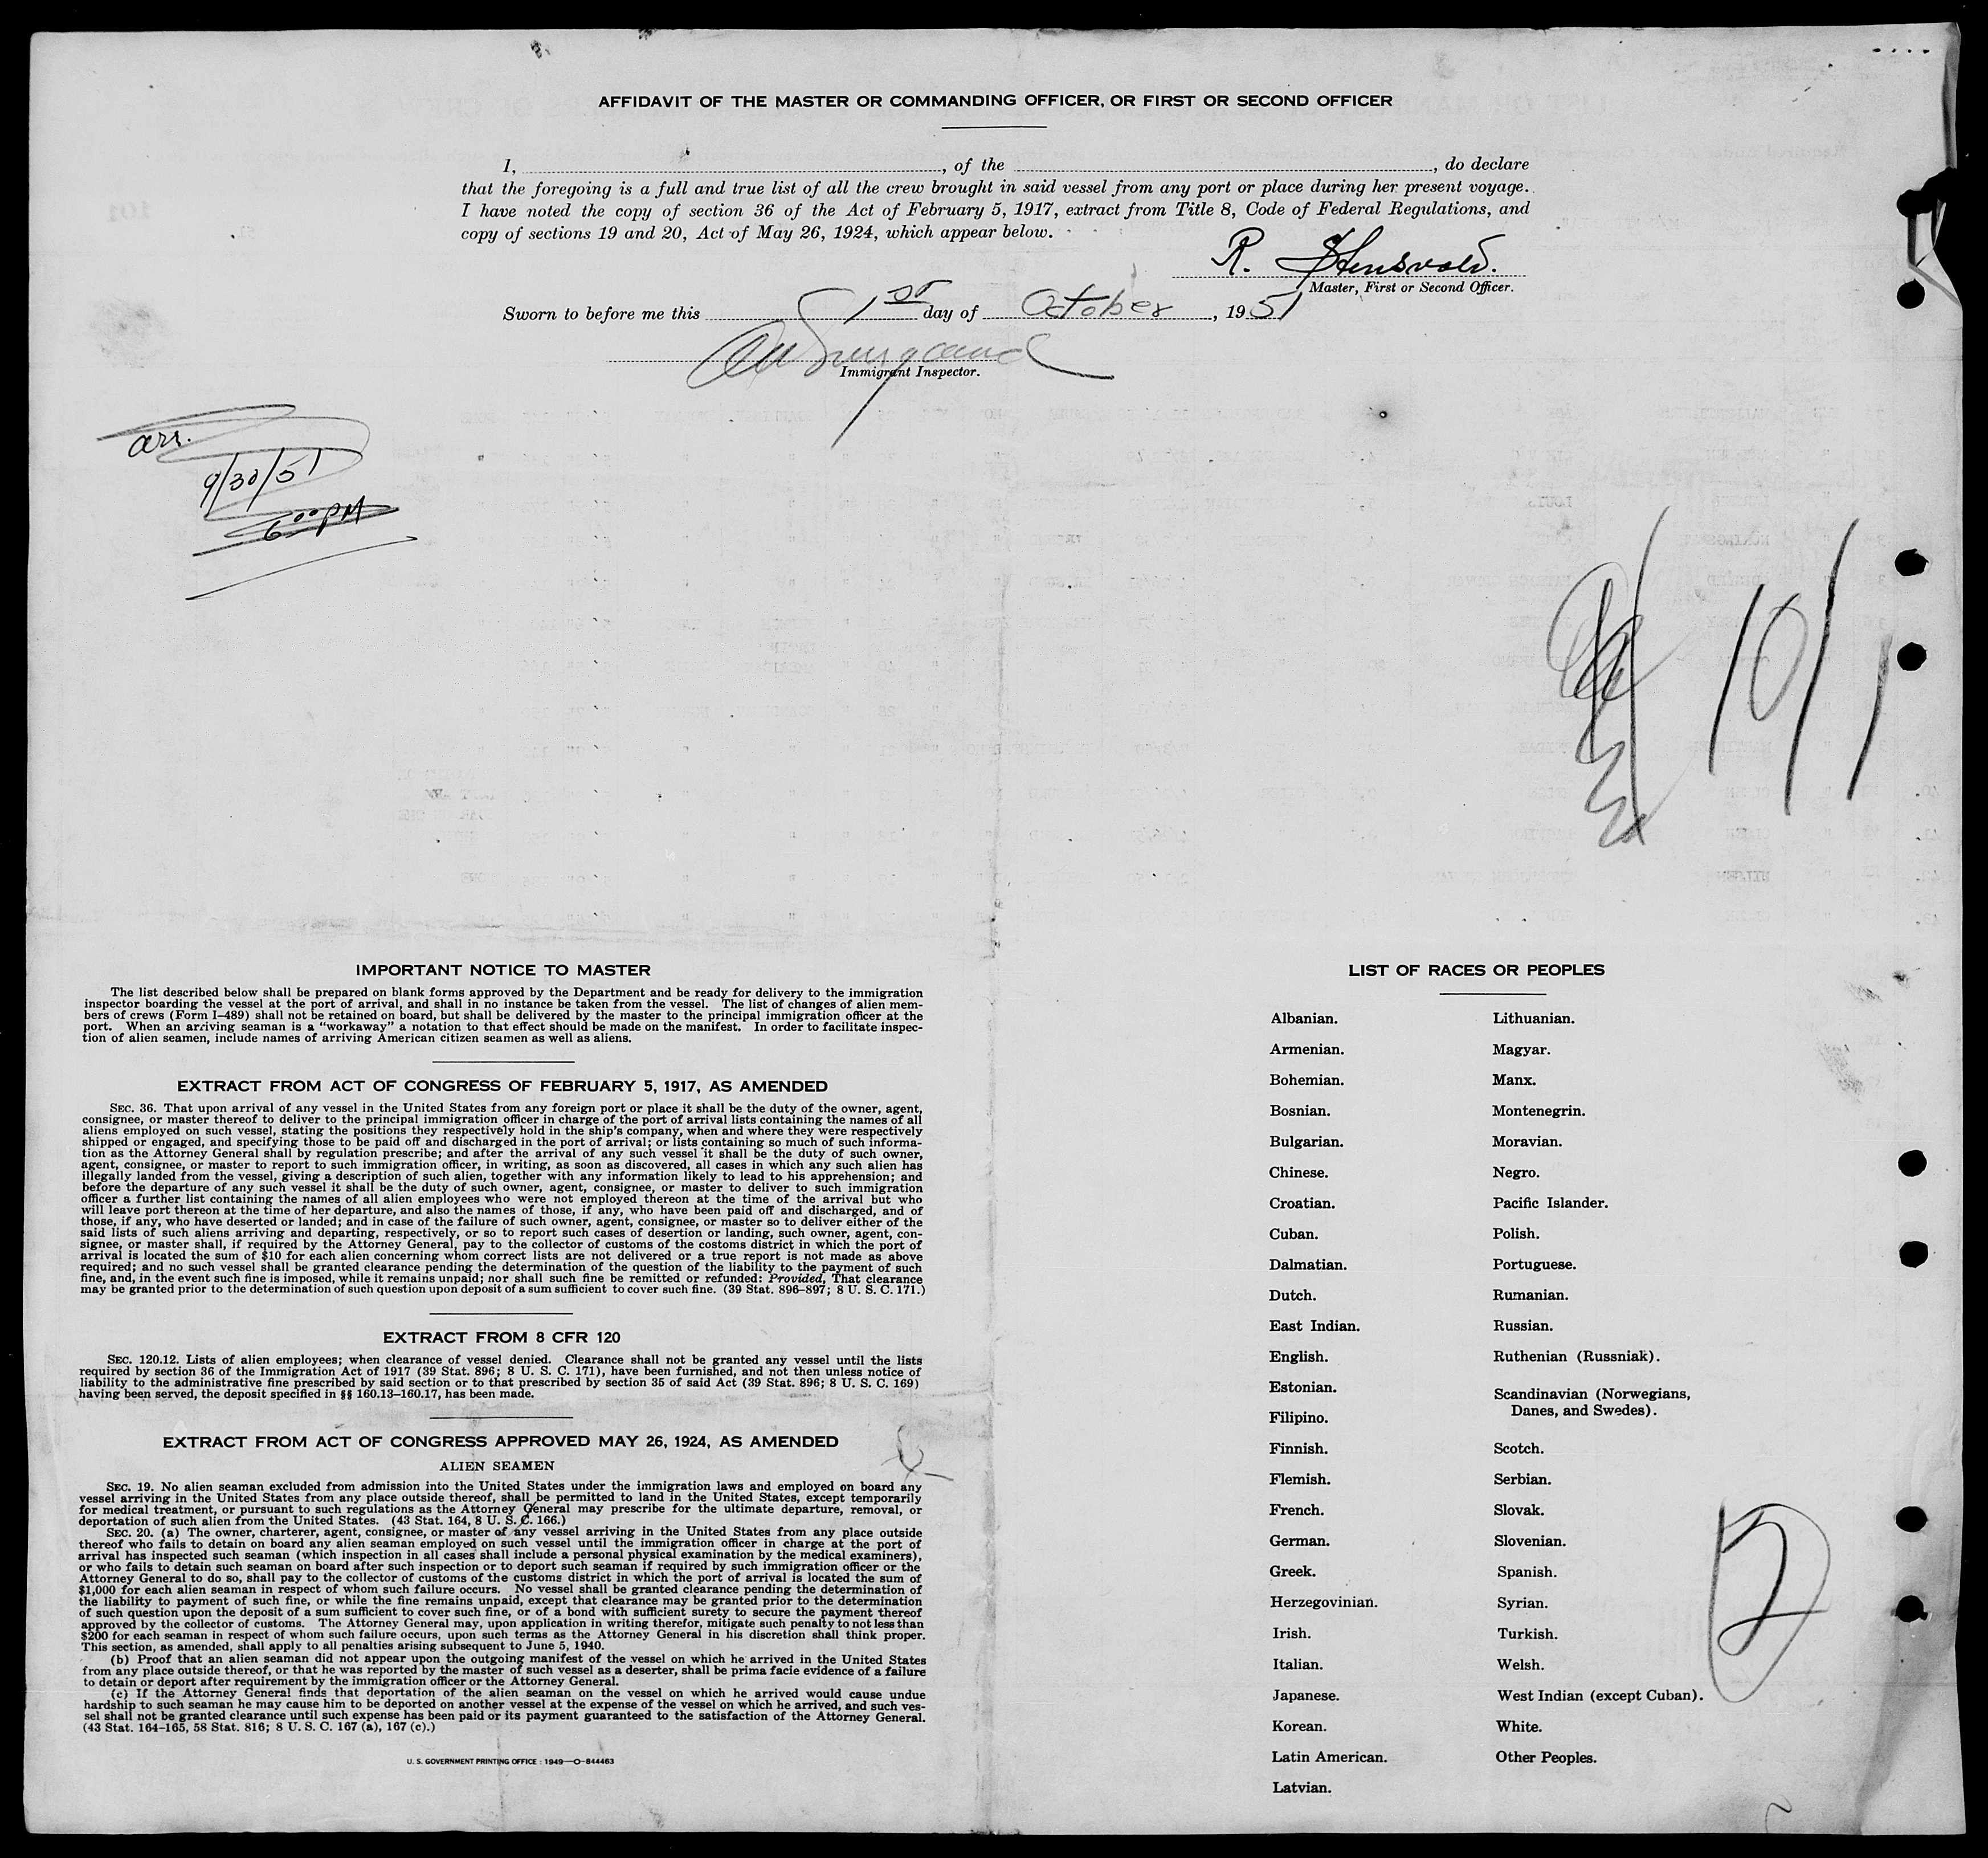 AFFIDAVIT OF THE MASTER OR COMMANDING OFFICER, OR FIRST OR SECOND OFFICER
I, , of the , do declare
that the foregoing is a full and true list of all the crew brought in said vessel from any port or place during her present voyage.
I have noted the copy of section 36 of the Act of February 5, 1917, extract from Title 8, Code of Federal Regulations, and
copy of sections 19 and 20, Act of May 26, 1924, which appear below.
R. Stensvold.
Master, First or Second Officer.
Sworn to before me this 1st day of October, 1951
Immigrant Inspector.
arr.
9/30/51
6 00 PM
10/1
IMPORTANT NOTICE TO MASTER
The list described below shall be prepared on blank forms approved by the Department and be ready for delivery to the immigration
inspector boarding the vessel at the port of arrival, and shall in no instance be taken from the vessel. The list of changes of alien mem-
bers of crews (Form I-489) shall not be retained on board, but shall be delivered by the master to the principal immigration officer at the
port. When an arriving seaman is a "workaway" a notation to that effect should be made on the manifest. In order to facilitate inspec-
tion of alien seamen, include names of arriving American citizen seamen as well as aliens.
EXTRACT FROM ACT OF CONGRESS OF FEBRUARY 5, 1917, AS AMENDED
SEC. 36. That upon arrival of any vessel in the United States from any foreign port or place it shall be the duty of the owner, agent,
consignee, or master thereof to deliver to the principal immigration officer in charge of the port of arrival lists containing the names of all
aliens employed on such vessel, stating the positions they respectively hold in the ship's company, when and where they were respectively
shipped or engaged, and specifying those to be paid off and discharged in the port of arrival; or lists containing so much of such informa-
tion as the Attorney General shall by regulation prescribe; and after the arrival of any such vessel it shall be the duty of such owner,
agent, consignee, or master to report to such immigration officer, in writing, as soon as discovered, all cases in which any such alien has
illegally landed from the vessel, giving a description of such alien, together with any information likely to lead to his apprehension; and
before the departure of any such vessel it shall be the duty of such owner, agent, consignee, or master to deliver to such immigration
officer a further list containing the names of all alien employees who were not employed thereon at the time of the arrival but who
will leave port thereon at the time of her departure, and also the names of those, if any, who have been paid off and discharged, and of
those, if any, who have deserted or landed; and in case of the failure of such owner, agent, consignee, or master so to deliver either of the
said lists of such aliens arriving and departing, respectively, or so to report such cases of desertion or landing, such owner, agent, con-
signee, or master shall, if required by the Attorney General, pay to the collector of customs of the costoms district in which the port of
arrival is located the sum of $10 for each alien concerning whom correct lists are not delivered or a true report is not made as above
required; and no such vessel shall be granted clearance pending the determination of the question of the liability to the payment of such
fine, and, in the event such fine is imposed, while it remains unpaid; nor shall such fine be remitted or refunded: Provided, That clearance
may be granted prior to the determination of such question upon deposit of a sum sufficient to cover such fine. (39 Stat. 896-897; 8 U. S. C. 171.)
EXTRACT FROM 8 CFR 120
SEC. 120.12. Lists of alien employees; when clearance of vessel denied. Clearance shall not be granted any vessel until the lists
required by section 36 of the Immigration Act of 1917 (39 Stat. 896; 8 U. S. C. 171), have been furnished, and not then unless notice of
liability to the administrative fine prescribed by said section or to that prescribed by section 35 of said Act (39 Stat. 896; 8 U. S. C. 169)
having been served, the deposit specified in §§ 160.13-160.17, has been made.
EXTRACT FROM ACT OF CONGRESS APPROVED MAY 26, 1924, AS AMENDED
ALIEN SEAMEN
SEC. 19. No alien seaman excluded from admission into the United States under the immigration laws and employed on board any
vessel arriving in the United States from any place outside thereof, shall be permitted to land in the United States, except temporarily
for medical treatment, or pursuant to such regulations as the Attorney General may prescribe for the ultimate departure, removal, or
deportation of such alien from the United States. (43 Stat. 164, 8 U. S. C. 166.)
SEC. 20. (a) The owner, charterer, agent, consignee, or master of any vessel arriving in the United States from any place outside
thereof who fails to detain on board any alien seaman employed on such vessel until the immigration officer in charge at the port of
arrival has inspected such seaman (which inspection in all cases shall include a personal physical examination by the medical examiners),
or who fails to detain such seaman on board after such inspection or to deport such seaman if required by such immigration officer or the
Attorney General to do so, shall pay to the collector of customs of the customs district in which the port of arrival is located the sum of
$1,000 for each alien seaman in respect of whom such failure occurs. No vessel shall be granted clearance pending the determination of
the liability to payment of such fine, or while the fine remains unpaid, except that clearance may be granted prior to the determination
of such question upon the deposit of a sum sufficient to cover such fine, or of a bond with sufficient surety to secure the payment thereof
approved by the collector of customs. The Attorney General may, upon application in writing therefor, mitigate such penalty to not less than
$200 for each seaman in respect of whom such failure occurs, upon such terms as the Attorney General in his discretion shall think proper.
This section, as amended, shall apply to all penalties arising subsequent to June 5, 1940.
(b) Proof that an alien seaman did not appear upon the outgoing manifest of the vessel on which he arrived in the United States
from any place outside thereof, or that he was reported by the master of such vessel as a deserter, shall be prima facie evidence of a failure
to detain or deport after requirement by the immigration officer or the Attorney General.
(c) If the Attorney General finds that deportation of the alien seaman on the vessel on which he arrived would cause undue
hardship to such seaman he may cause him to be deported on another vessel at the expense of the vessel on which he arrived, and such ves-
sel shall not be granted clearance until such expense has been paid or its payment guaranteed to the satisfaction of the Attorney General.
(43 Stat. 164-165, 58 Stat. 816; 8 U. S. C. 167 (a), 167 (c).)
U. S. GOVERNMENT PRINTING OFFICE : 1949—O-844463
LIST OF RACES OR PEOPLES
Albanian.
Armenian.
Bohemian.
Bosnian.
Bulgarian.
Chinese.
Croatian.
Cuban.
Dalmatian.
Dutch.
East Indian.
English.
Estonian.
Filipino.
Finnish.
Flemish.
French.
German.
Greek.
Herzegovinian.
Irish.
Italian.
Japanese.
Korean.
Latin American.
Latvian.
Lithuanian.
Magyar.
Manx.
Montenegrin.
Moravian.
Negro.
Pacific Islander.
Polish.
Portuguese.
Rumanian.
Russian.
Ruthenian (Russniak).
Scandinavian (Norwegians,
Danes, and Swedes).
Scotch.
Serbian.
Slovak.
Slovenian.
Spanish.
Syrian.
Turkish.
Welsh.
West Indian (except Cuban).
White.
Other Peoples.